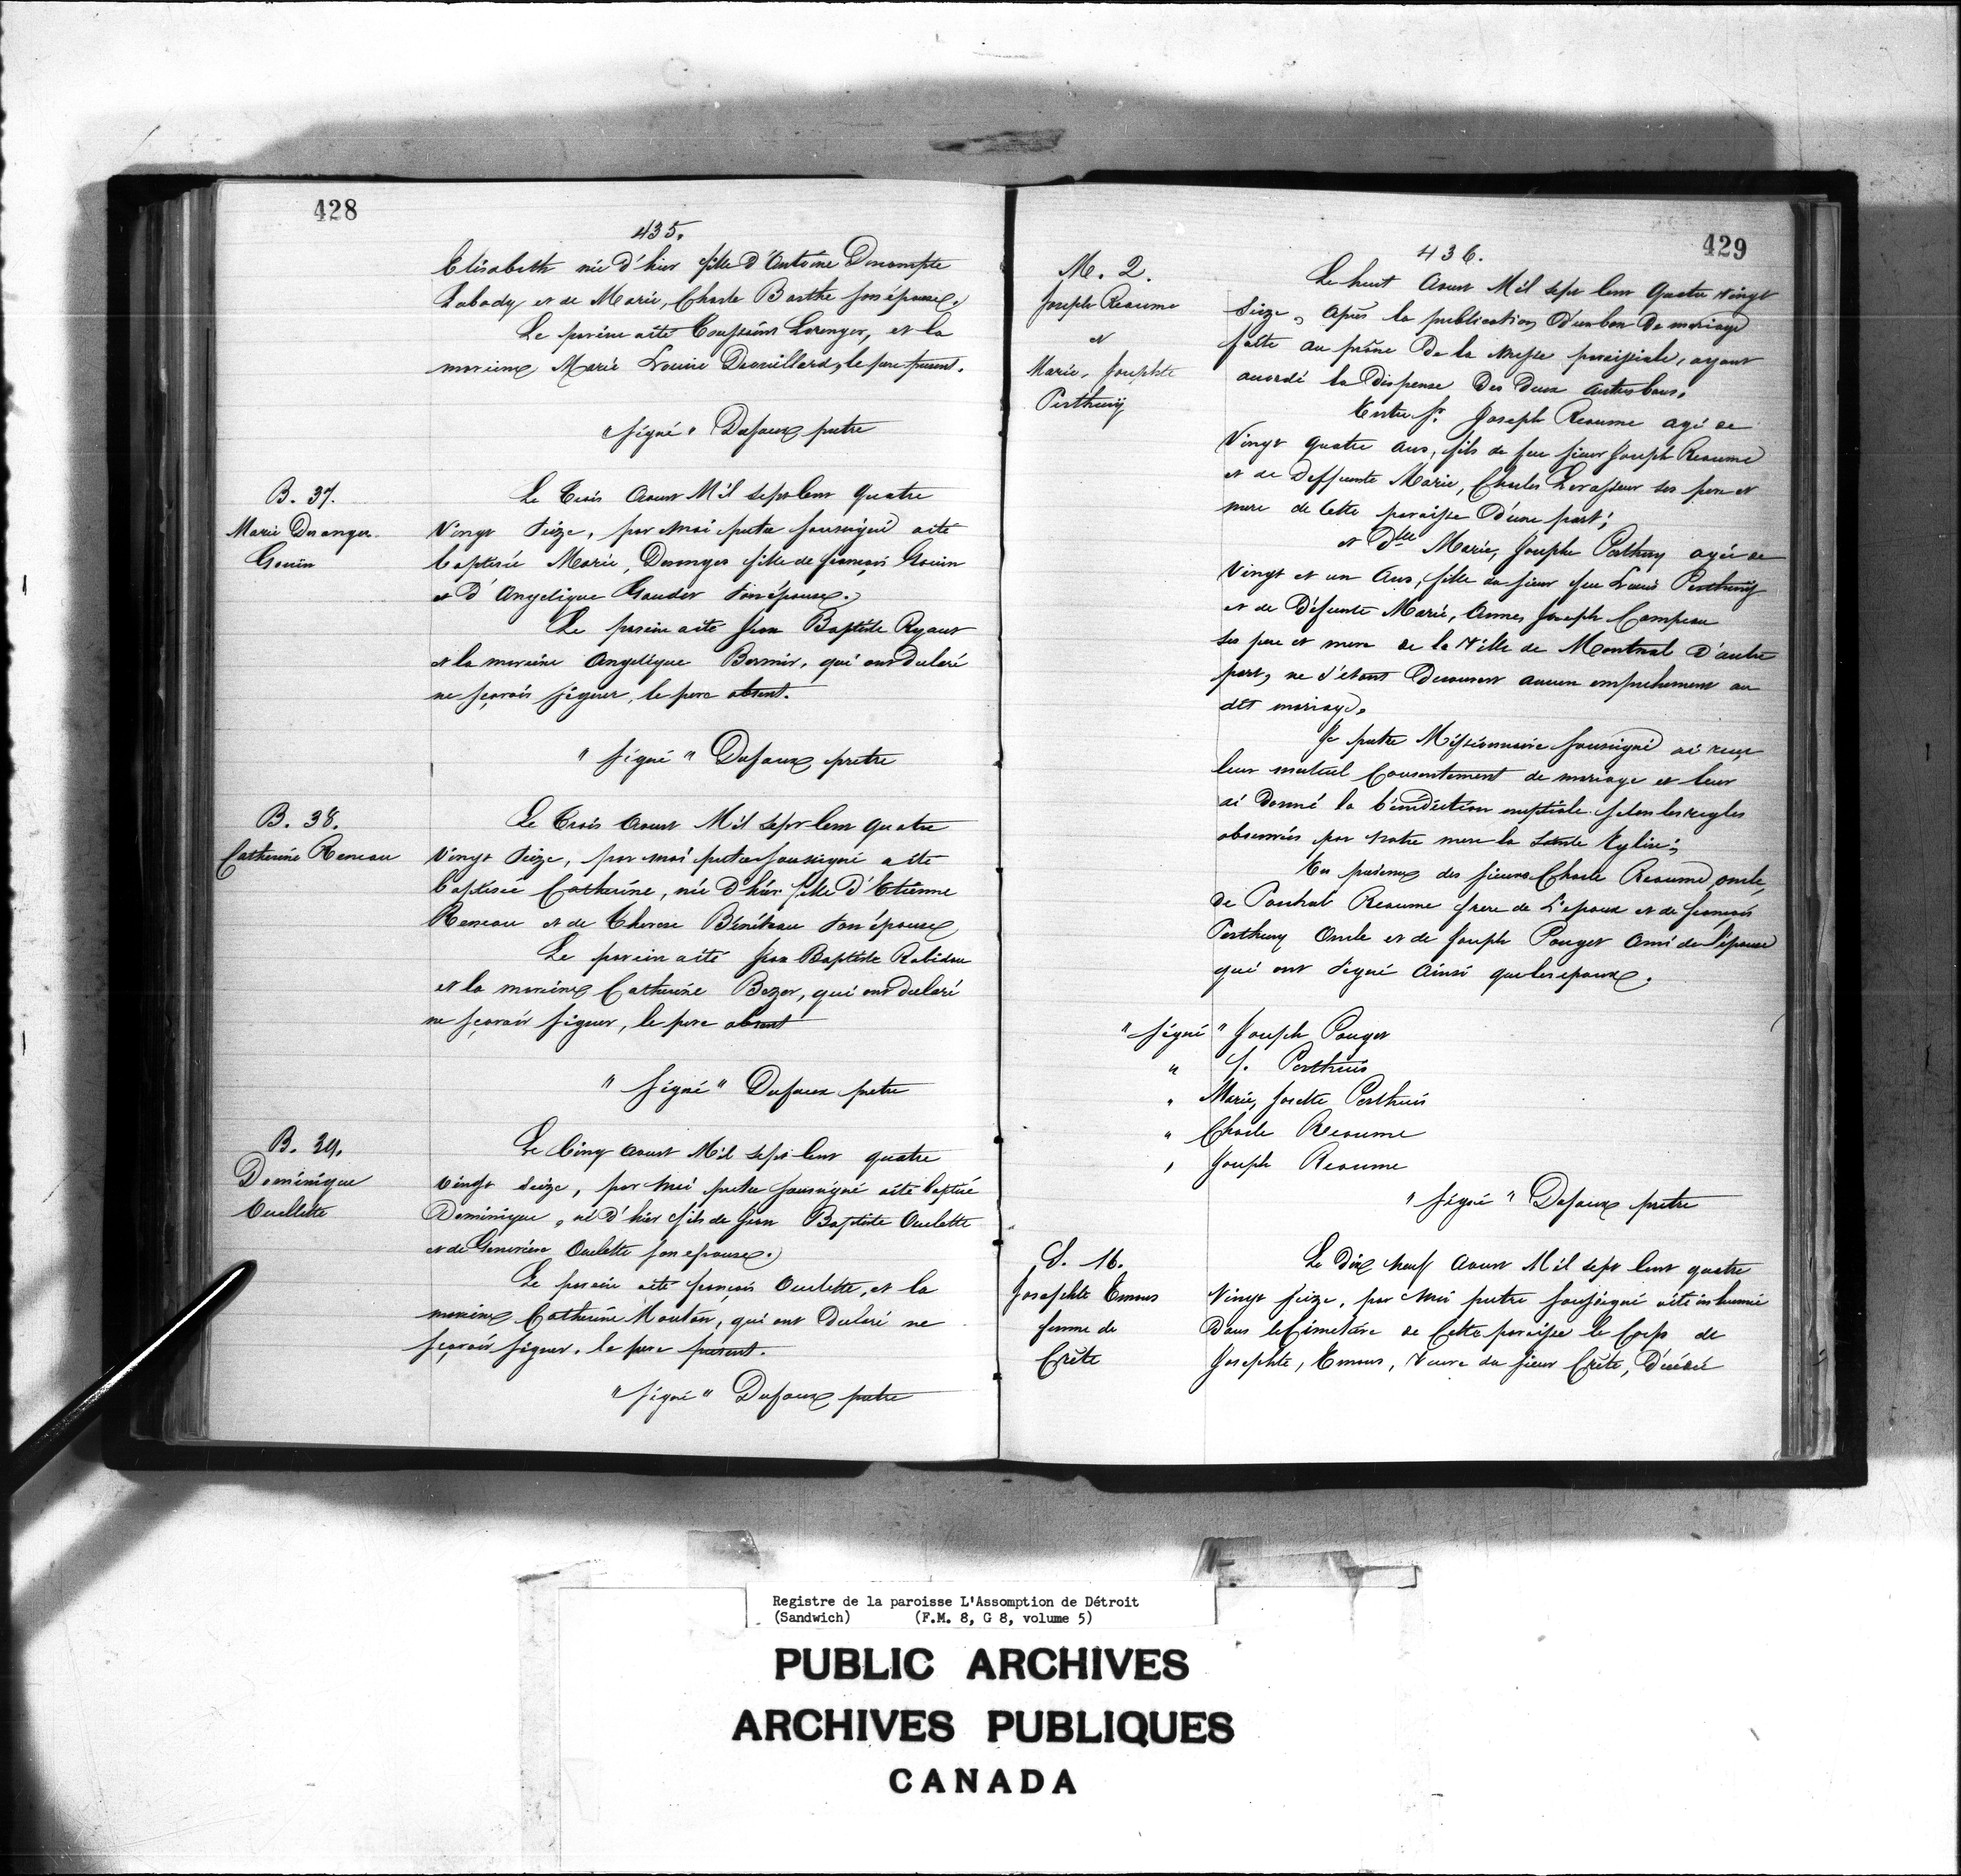 428
435.
Elisabeth née d'hier fille d'Antoine Descompte
Labady et de Marie, Charle Barthe son épouse.
Le parein a été Toussaint Lorenger, et la
mareine Marie Louise Drouillard, le pere present.
"signé" Dufaux pretre
B. 37.
Marie Desanges
Gouin
Le Trois Aoust Mil sept Cent Quatre
Vingt Seize, par moi pretre soussigné a été
baptisée Marie, Desanges fille de françois Gouin
et d'Angelique Goudet son épouse.
Le parein a été Jean Baptiste
et la mareine Angelique Bernier, qui ont declaré
ne sçavoir signer, le pere absent.
"signé" Dufaux pretre
B. 38.
Catherine Reneau
Le Trois Aoust Mil sept Cent quatre
Vingt Seize, par moi pretre soussigné a été
baptisée Catherine, née d'hier fille d'Etienne
Reneau et de Therese Bénéteau son épouse
Le parein a été Jean Baptiste Robidou
et la mareine Catherine Bezer, qui ont declaré
ne sçavoir signer, le pere absent
"signé" Dufaux pretre
B. 39.
Dominique
Ouellette
Le Cinq Aoust Mil sept Cent quatre
vingt seize, par moi pretre soussigné a été baptisé
Dominique, né d'hier fils de Jean Baptiste Ouelette
et de Genevieve Ouelette son epouse.
Le parein a été françois Ouelette, et la
mareine Catherine Mouton, qui ont declaré ne
sçavoir signer, le pere present.
"signé" Dufaux pretre
429
436.
M. 2.
Joseph Reaume
et
Marie, Josephte
Perthuy
Le huit Aoust Mil sept Cent Quatre Vingt
Seize, après la publication d'un ban de mariage
faitte au prône de la messe paroissiale, ayant
accordé la dispense des deux autres bans.
Entre Sr. Joseph Reaume agé de
Vingt quatre ans, fils de feu sieur Joseph Reaume
et de Deffunte Marie, Charles Levasseur ses pere et
mere de Cette paroisse d'une part;
et Dlle Marie, Josephe Perthuy agée de
Vingt et un Ans, fille du sieur feu Louis Perthuy
et de Défunte Marie, Anne, Joseph Campeau
ses pere et mere de la Ville de Montreal d'autre
part, ne s'étant Decouvert aucun empechement au
dit mariage.
Je pretre Missionnaire soussigné ai reçu
leur mutuel Consentement de mariage et leur
ai donné la bénédiction nuptiale selon les regles
observées par notre mere la Sainte Eglise;
En presence des sieurs Charle Reaume oncle,
de Postral Reaume frere de L'epoux et de françois
Perthuy Oncle et de Joseph Pouget Ami de l'épouse
qui ont signé Ainsi que les epoux.
"signé" Joseph Pouget
" f. Perthuis
" Marie, Josette Perthuis
" Charle Reaume
" Joseph Reaume
"signé" Dufaux pretre
S. 16.
Josephte Emons
femme de
Crête
Le Dix neuf Aoust Mil sept Cent quatre
Vingt seize, par moi pretre soussigné a été inhumée
Dans le Cimetière de Cette paroisse le Corps de
Josephte, Emons, Veuve du sieur Crête, Décédée
Registre de la paroisse L'Assomption de Détroit
(Sandwich) (F.M. 8, G 8, volume 5)
PUBLIC ARCHIVES
ARCHIVES PUBLIQUES
CANADA